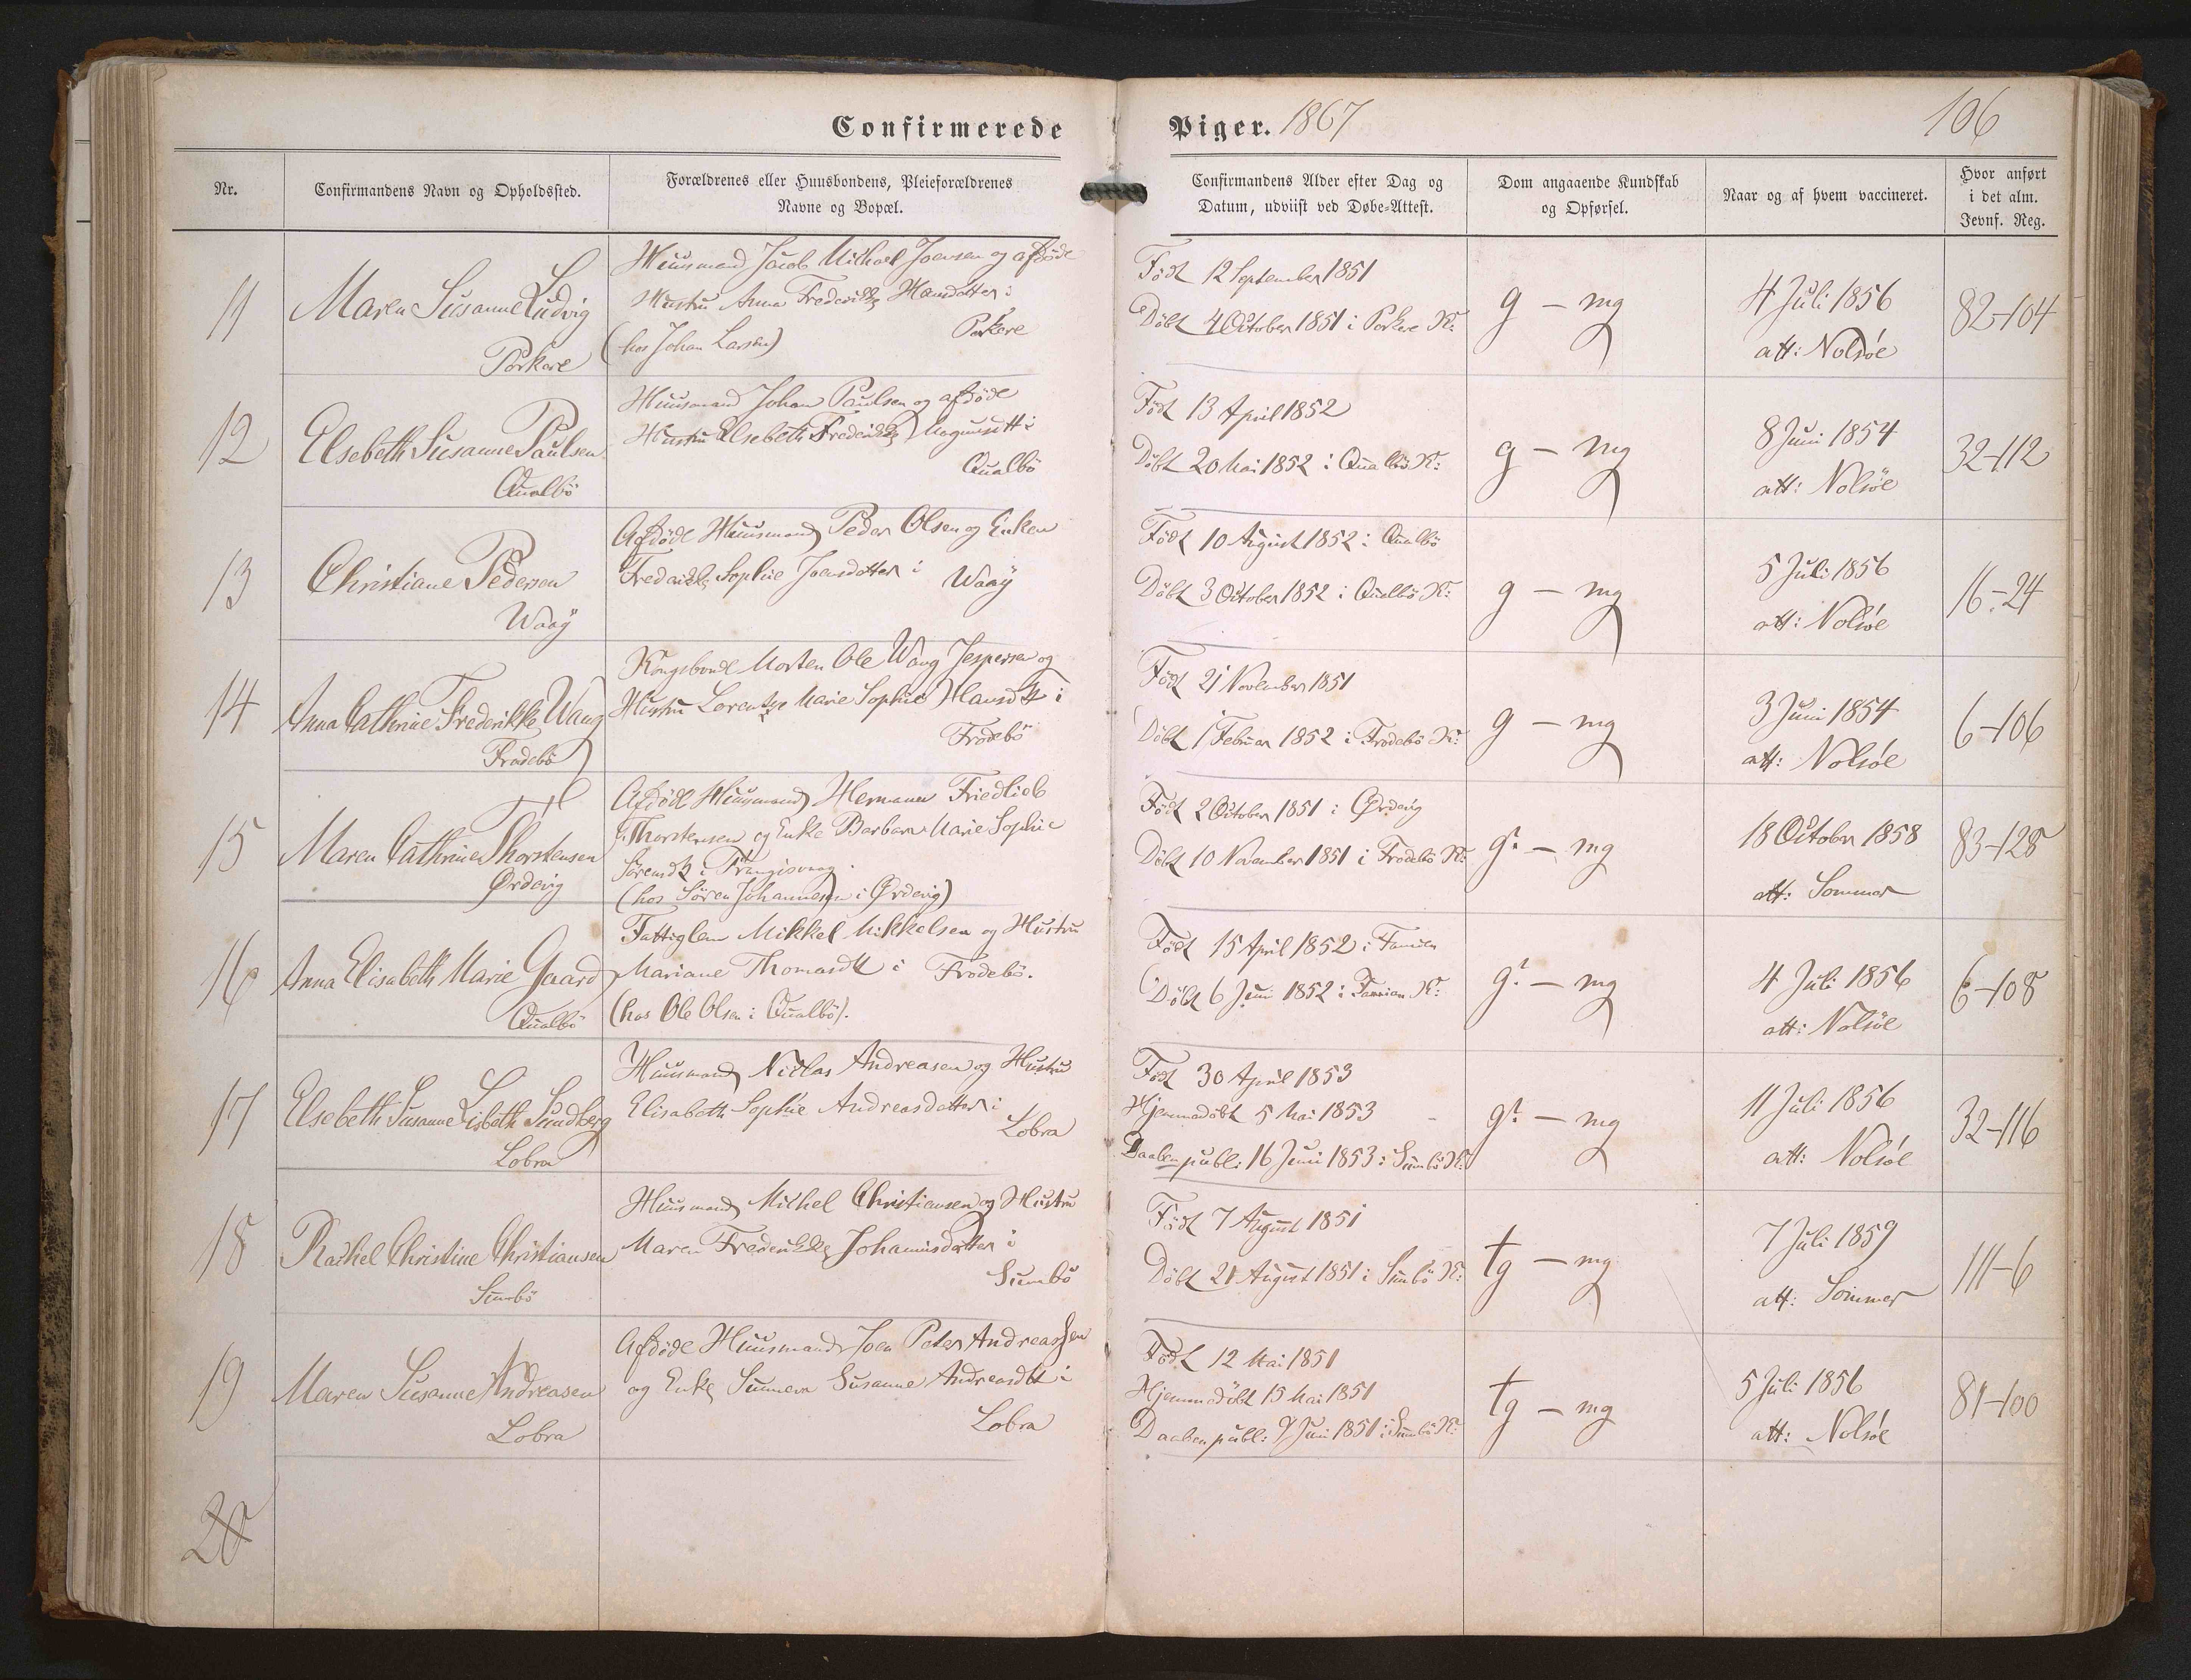 Confirmerede Piger. 1867
106
Nr.
Confirmandens Navn og Opholdssted.
Forældrenes eller Huusbondens, Pleieforældrenes
Navne og Bopæl.
Confirmandens Alder efter Dag og
Datum, udviist ved Døbe-Attest.
Dom angaaende Kundskab
og Opførsel.
Naar og af hvem vaccineret.
Hvor anført
i det alm.
Jevnf. Reg.
11
Maren Susanne Ludvig
Porkere
Huusmand Jacob Michael Joensen og afdöde
Hustru Anna Frederikke Hansdatter i
Porkere
(hos Johan Larsen)
Födt 12 September 1851
Döbt 4 October 1851 i Porkere K:
g – mg
4 Juli 1856
att: Nolsöe
82-104
12
Elsebeth Susanne Paulsen
Qualbö
Huusmand Johan Paulsen og afdöde
Hustru Elsebeth Frederikke Magnusdtt i
Qualbö
Födt 13 April 1852
Döbt 20 Mai 1852 i Qualbö K:
g – mg
8 Juni 1854
att: Nolsöe
32-112
13
Christiane Pedersen
Waag
Afdöde Huusmand Peder Olsen og Enken
Frederikke Sophie Joensdatter i Waag
Födt 10 August 1852 i Qualbö
Döbt 3 October 1852 i Qualbö K:
g – mg
5 Juli 1856
att: Nolsöe
16-24
14
Anna Cathrine Frederikke Wang
Frodebö
Kongsbonde Morten Ole Wang Jespersen og
Hustru Lorentze Marie Sophie Hansdtt i
Frodebö
Födt 21 November 1851
Döbt 1 Februar 1852 i Frodebö K:
g – mg
3 Juni 1854
att: Nolsöe
6-106
15
Maren Cathrine Thorstensen
Ørdevig
Afdöde Huusmand Hermann Friedlieb
Thorstensen og Enke Barbara Marie Sophie
Sörensdtt i Trangisvaag
(hos Sören Johannesen i Ørdevig)
Födt 2 October 1851 i Ørdevig
Döbt 10 November 1851 i Frodebö K:
g? – mg
18 October 1858
att: Sommer
83-128
16
Anna Elisabeth Marie Gaard
Qualbö
Fattiglem Mikkel Mikkelsen og Hustru
Mariane Thomasdtt i Frodebö.
(hos Ole Olsen i Qualbö).
Födt 15 April 1852 i Famien
Döbt 6 Juni 1852 i Famien K:
g? – mg
4 Juli 1856
att: Nolsöe
6-108
17
Elsebeth Susanne Lisbeth Sundberg
Lobra
Huusmand Niclas Andreasen og Hustru
Elisabeth Sophie Andreasdatter i
Lobra
Födt 30 April 1853
Hjemmedöbt 5 Mai 1853
Daaben publ: 16 Juni 1853 i Sumbö K:
g? – mg
11 Juli 1856
att: Nolsöe
32-116
18
Rachel Christine Christiansen
Sumbö
Huusmand Michel Christiansen og Hustru
Maren Frederikke Johannisdatter i
Sumbö
Födt 7 August 1851
Döbt 21 August 1851 i Sumbö K:
tg – mg
7 Juli 1859
att: Sommer
111-6
19
Maren Susanne Andreasen
Lobra
Afdöde Huusmand Joen Peter Andreassen
og Enke Sunneva Susanne Andreasdtt i
Lobra
Födt 12 Mai 1851
Hjemmedöbt 15 Mai 1851
Daaben publ: 9 Juni 1851 i Sumbö K:
tg – mg
5 Juli 1856
att: Nolsöe
81-100
20